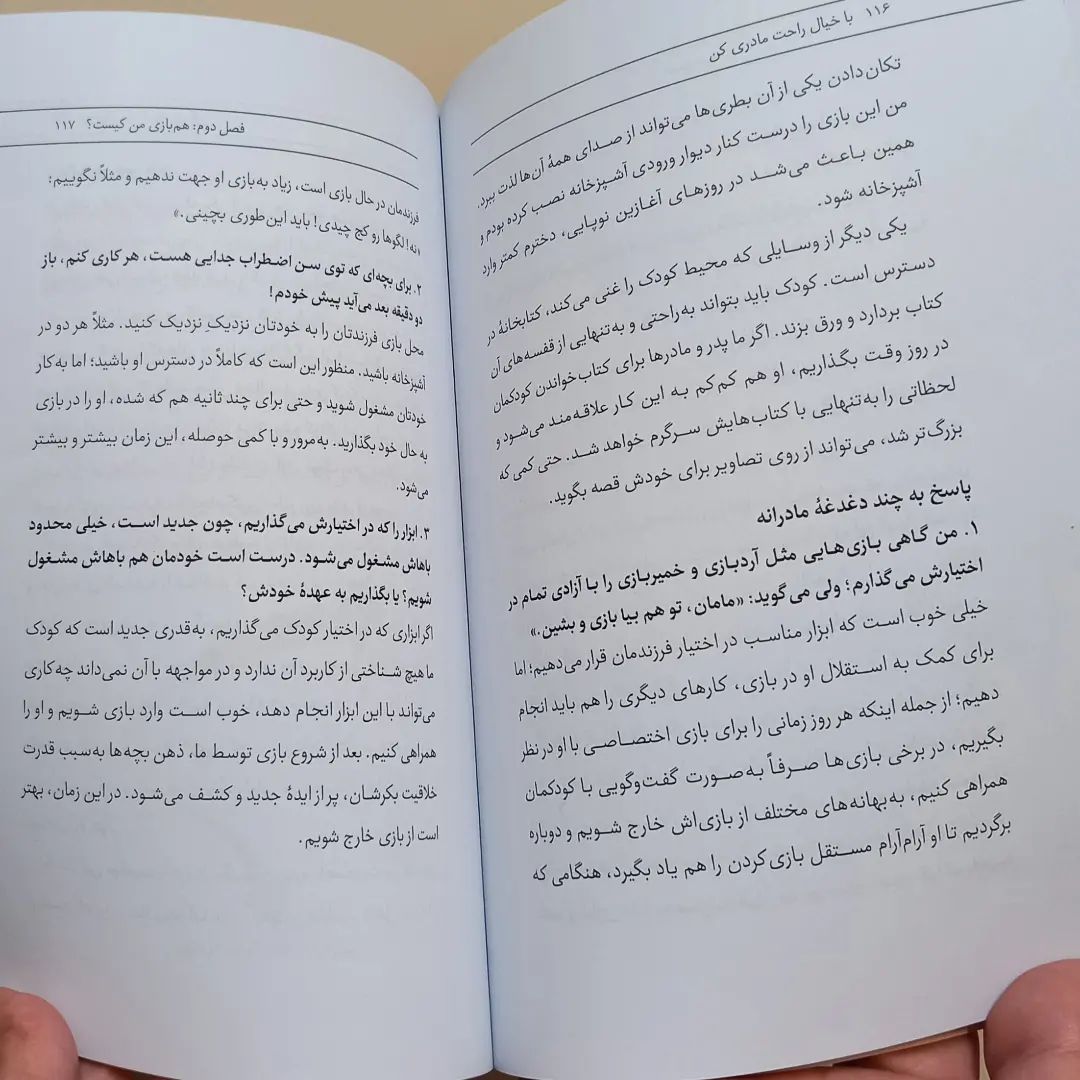 ۱۱۶ با خیال راحت مادری کن
تکان‌دادن یکی از آن بطری‌ها می‌تواند از صدای همهٔ آن‌ها لذت ببرد.
من این بازی را درست کنار دیوار ورودی آشپزخانه نصب کرده بودم و
همین باعث می‌شد در روزهای آغازین نوپایی، دخترم کمتر وارد
آشپزخانه شود.
یکی دیگر از وسایلی که محیط کودک را غنی می‌کند، کتابخانهٔ در
دسترس است. کودک باید بتواند به‌راحتی و به‌تنهایی از قفسه‌های آن
کتاب بردارد و ورق بزند. اگر ما پدر و مادرها برای کتاب‌خواندن کودکمان
در روز وقت بگذاریم، او هم کم‌کم به این کار علاقه‌مند می‌شود و
لحظاتی را به‌تنهایی با کتاب‌هایش سرگرم خواهد شد. حتی کمی که
بزرگ‌تر شد، می‌تواند از روی تصاویر برای خودش قصه بگوید.
پاسخ به چند دغدغهٔ مادرانه
۱. من گاهی بازی‌هایی مثل آردبازی و خمیربازی را با آزادی تمام در
اختیارش می‌گذارم؛ ولی می‌گوید: «مامان، تو هم بیا بازی و بشین.»
خیلی خوب است که ابزار مناسب در اختیار فرزندمان قرار می‌دهیم؛ اما
برای کمک به استقلال او در بازی، کارهای دیگری را هم باید انجام
دهیم؛ از جمله اینکه هر روز زمانی را برای بازی اختصاصی با او در نظر
بگیریم، در برخی بازی‌ها صرفاً به‌صورت گفت‌وگویی با کودکمان
همراهی کنیم، به‌بهانه‌های مختلف از بازی‌اش خارج شویم و دوباره
برگردیم تا او آرام‌آرام مستقل بازی‌کردن را هم یاد بگیرد، هنگامی که
فصل دوم: هم‌بازی من کیست؟ ۱۱۷
فرزندمان در حال بازی است، زیاد به‌بازی او جهت ندهیم و مثلاً نگوییم:
«نه! لگوها رو کج چیدی! باید این‌طوری بچینی.»
۲. برای بچه‌ای که توی سن اضطراب جدایی هست، هر کاری کنم، باز
دو دقیقه بعد می‌آید پیش خودم!
محل بازی فرزندتان را به خودتان نزدیکِ نزدیک کنید. مثلاً هر دو در
آشپزخانه باشید. منظور این است که کاملاً در دسترس او باشید؛ اما به‌کار
خودتان مشغول شوید و حتی برای چند ثانیه هم که شده، او را در بازی
به حال خود بگذارید. به‌مرور و با کمی حوصله، این زمان بیشتر و بیشتر
می‌شود.
۳. ابزار را که در اختیارش می‌گذاریم، چون جدید است، خیلی محدود
باهاش مشغول می‌شود. درست است خودمان هم باهاش مشغول
شویم؟ یا بگذاریم به عهدهٔ خودش؟
اگر ابزاری که در اختیار کودک می‌گذاریم، به‌قدری جدید است که کودک
ما هیچ شناختی از کاربرد آن ندارد و در مواجهه با آن نمی‌داند چه‌کاری
می‌تواند با این ابزار انجام دهد، خوب است وارد بازی شویم و او را
همراهی کنیم. بعد از شروع بازی توسط ما، ذهن بچه‌ها به‌سبب قدرت
خلاقیت بکرشان، پر از ایدهٔ جدید و کشف می‌شود. در این زمان، بهتر
است از بازی خارج شویم.